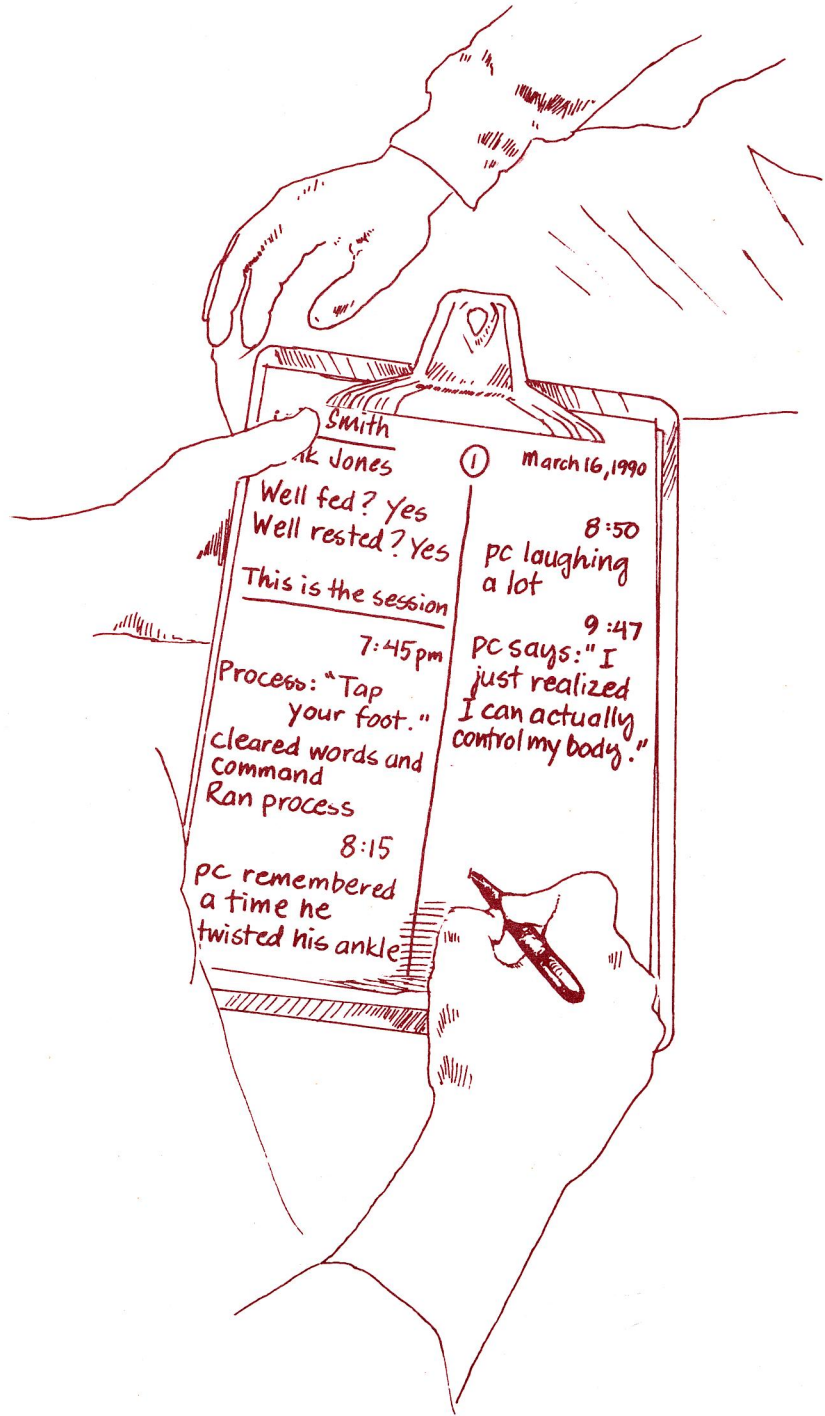 Smith
Jones
Well fed? Yes
Well rested? Yes
This is the session
7:45pm
Process: "Tap
your foot."
cleared words and
command
Ran process
8:15
pc remembered
a time he
twisted his ankle
1
March 16, 1990
8:50
pc laughing
a lot
9:47
pc says: "I
just realized
I can actually
control my body."